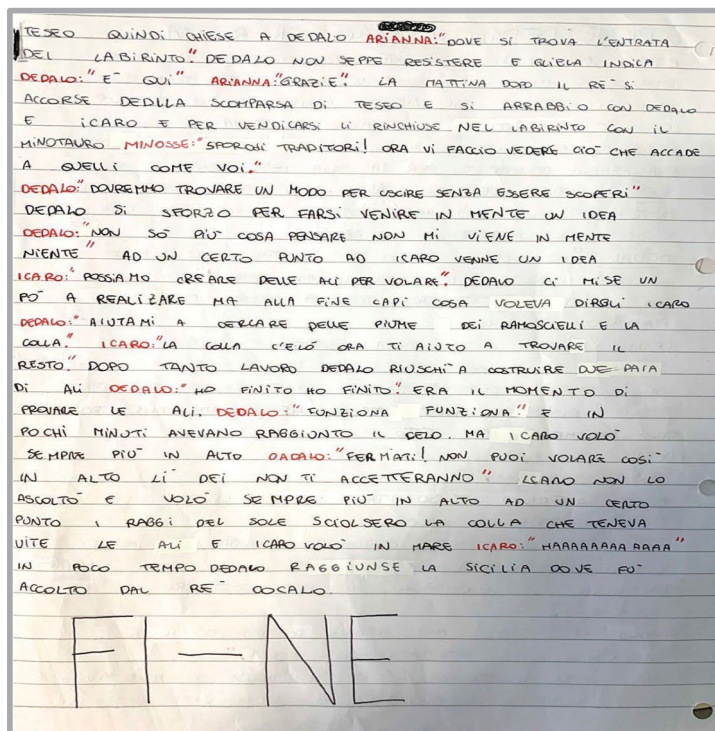 TESEO QUINDI CHIESE A DEDALO ARIANNA:"DOVE SI TROVA L'ENTRATA
DEL LABIRINTO". DEDALO NON SEPPE RESISTERE E GLIELA INDICA
DEDALO:"E' QUI" ARIANNA:"GRAZIE". LA MATTINA DOPO IL RE' SI
ACCORSE DEDLLA SCOMPARSA DI TESEO E SI ARRABBIO CON DEDALO
E ICARO E PER VENDICARSI LI RINCHIUSE NEL LABIRINTO CON IL
MINOTAURO MINOSSE:"SPOROSI TRADITORI! ORA VI FACCIO VEDERE CIO' CHE ACCADE
A QUELLI COME VOI."
DEDALO:"DOVREMMO TROVARE UN MODO PER USCIRE SENZA ESSERE SCOPERI"
DEDALO SI SFORZO PER FARSI VENIRE IN MENTE UN IDEA
DEDALO:"NON SO' PIU' COSA PENSARE NON MI VIENE IN MENTE
NIENTE" AD UN CERTO PUNTO AD ICARO VENNE UN IDEA
ICARO:"POSSIAMO CREARE DELLE ALI PER VOLARE". DEDALO CI MISE UN
PO' A REALIZARE MA ALLA FINE CAPI COSA VOLEVA DIRGLI ICARO
DEDALO:"AIUTAMI A CERCARE DELLE PIUME DEI RAMOSCIELLI E LA
COLLA." ICARO:"LA COLLA C'ELÓ ORA TI AIUTO A TROVARE IL
RESTO." DOPO TANTO LAVORO DEDALO RIUSCHI A COSTRUIRE DUE PAIA
DI ALI DEDALO:"HO FINITO HO FINITO". ERA IL MOMENTO DI
PROVARE LE ALI. DEDALO:"FUNZIONA FUNZIONA!" E IN
POCHI MINUTI AVEVANO RAGGIUNTO IL CELO. MA ICARO VOLO'
SEMPRE PIU' IN ALTO DADALO:"FERMATI! NON PUOI VOLARE COSI'
IN ALTO LI' DEI NON TI ACCETTERANNO" ICARO NON LO
ASCOLTO' E VOLO' SEMPRE PIU' IN ALTO AD UN CERTO
PUNTO I RAGGI DEL SOLE SCIOLSERO LA COLLA CHE TENEVA
UITE LE ALI E ICARO VOLO' IN MARE ICARO:"HAAAAAAAA AAAA"
IN POCO TEMPO DEDALO RAGGIUNSE LA SICILIA DOVE FU'
ACCOLTO DAL RE' COCALO.
FI-NE